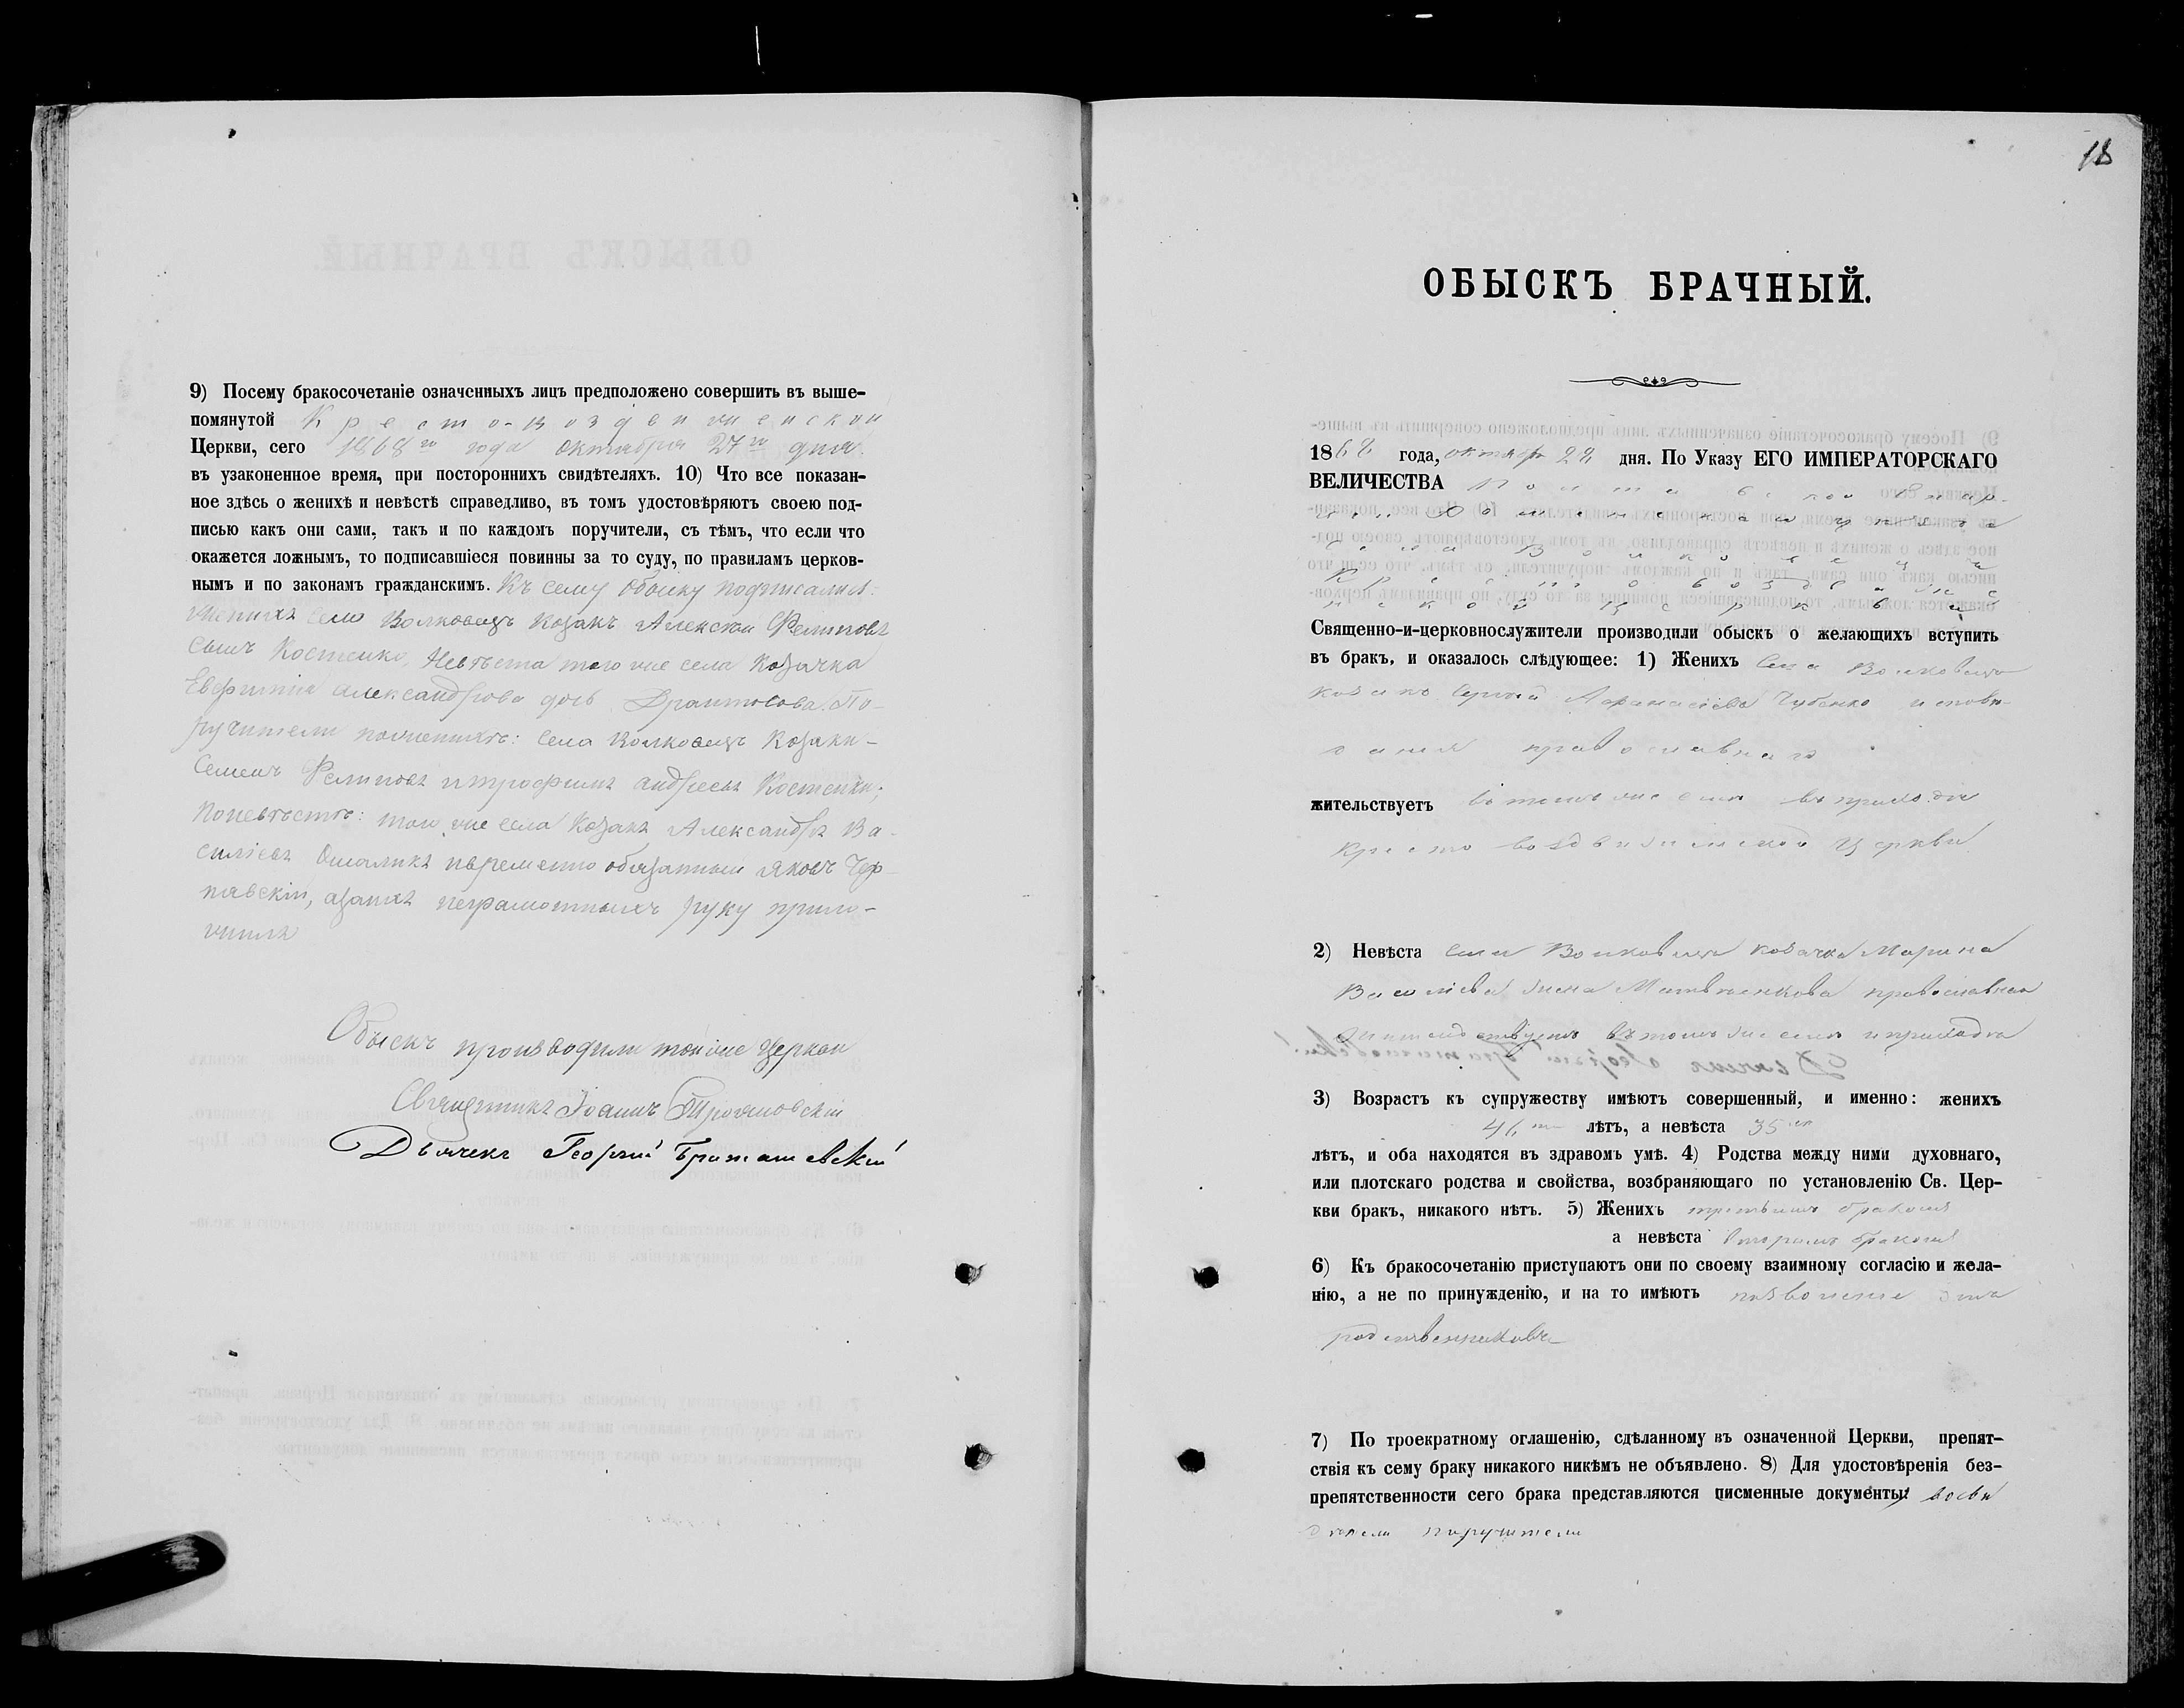 9) Посему бракосочетаніе означенныхъ лицъ предположено совершить въ выше-
помянутой Кресто-воздвиженской
Церкви, сего 1868го года октября 27го дня
въ узаконенное время, при постороннихъ свидѣтеляхъ. 10) Что все показан-
ное здѣсь о женихѣ и невѣстѣ справедливо, въ томъ удостовѣряютъ своею под-
писью какъ они сами, такъ и по каждомъ поручители, съ тѣмъ, что если что
окажется ложнымъ, то подписавшіеся повинны за то суду, по правиламъ церков-
нымъ и по законамъ гражданскимъ. Къ сему обыску подписались:
женихъ села Волковецъ козакъ Алексѣй Фелиповъ
сынъ Костенко, Невѣста того же села козачка
Евфимія Александрова дочь По-
ручители по женихѣ: села Волковецъ козаки
Семенъ Фелиповъ и Трофимъ Андреевъ Костенки;
по невѣстѣ: того же села козакъ Александръ Ва-
силіевъ временно обязанный Яковъ Чер-
нявскій, а за нихъ неграмотныхъ руку прило-
жилъ
Обыскъ производили той же Церкви
Священникъ Іоаннъ
Дьячекъ Георгій
18
ОБЫСКЪ БРАЧНЫЙ.
1868 года, октяб. дня. По Указу ЕГО ИМПЕРАТОРСКАГО
ВЕЛИЧЕСТВА Полтавской Епар-
уѣзда
села Волковецъ
Кресто-воздвиже
нской церкви
Священно-и-церковнослужители производили обыскъ о желающихъ вступить
въ бракъ, и оказалось слѣдующее: 1) Женихъ села Волковецъ
козакъ Сергій Афанасіевъ Чубенко исповѣ-
данія православнаго
жительствуетъ въ томъ же селѣ въ приходѣ
Кресто воздвиженской Церкви
2) Невѣста села Волковецъ козачка Марина
Василіева жена Матвѣенкова православная
жительствуетъ въ томъ же селѣ и приходѣ
3) Возрастъ къ супружеству имѣютъ совершенный, и именно: женихъ
лѣтъ, а невѣста 35
лѣтъ, и оба находятся въ здравомъ умѣ. 4) Родства между ними духовнаго,
или плотскаго родства и свойства, возбраняющаго по установленію Св. Цер-
кви бракъ, никакого нѣтъ. 5) Женихъ третьимъ бракомъ
а невѣста вторымъ бракомъ
6) Къ бракосочетанію приступаютъ они по своему взаимному согласію и жела-
нію, а не по принужденію, и на то имѣютъ позволеніе отъ
родственниковъ
7) По троекратному оглашенію, сдѣланному въ означенной Церкви, препят-
ствія къ сему браку никакого никѣмъ не объявлено. 8) Для удостовѣренія без-
препятственности сего брака представляются писменные документы:
поручители